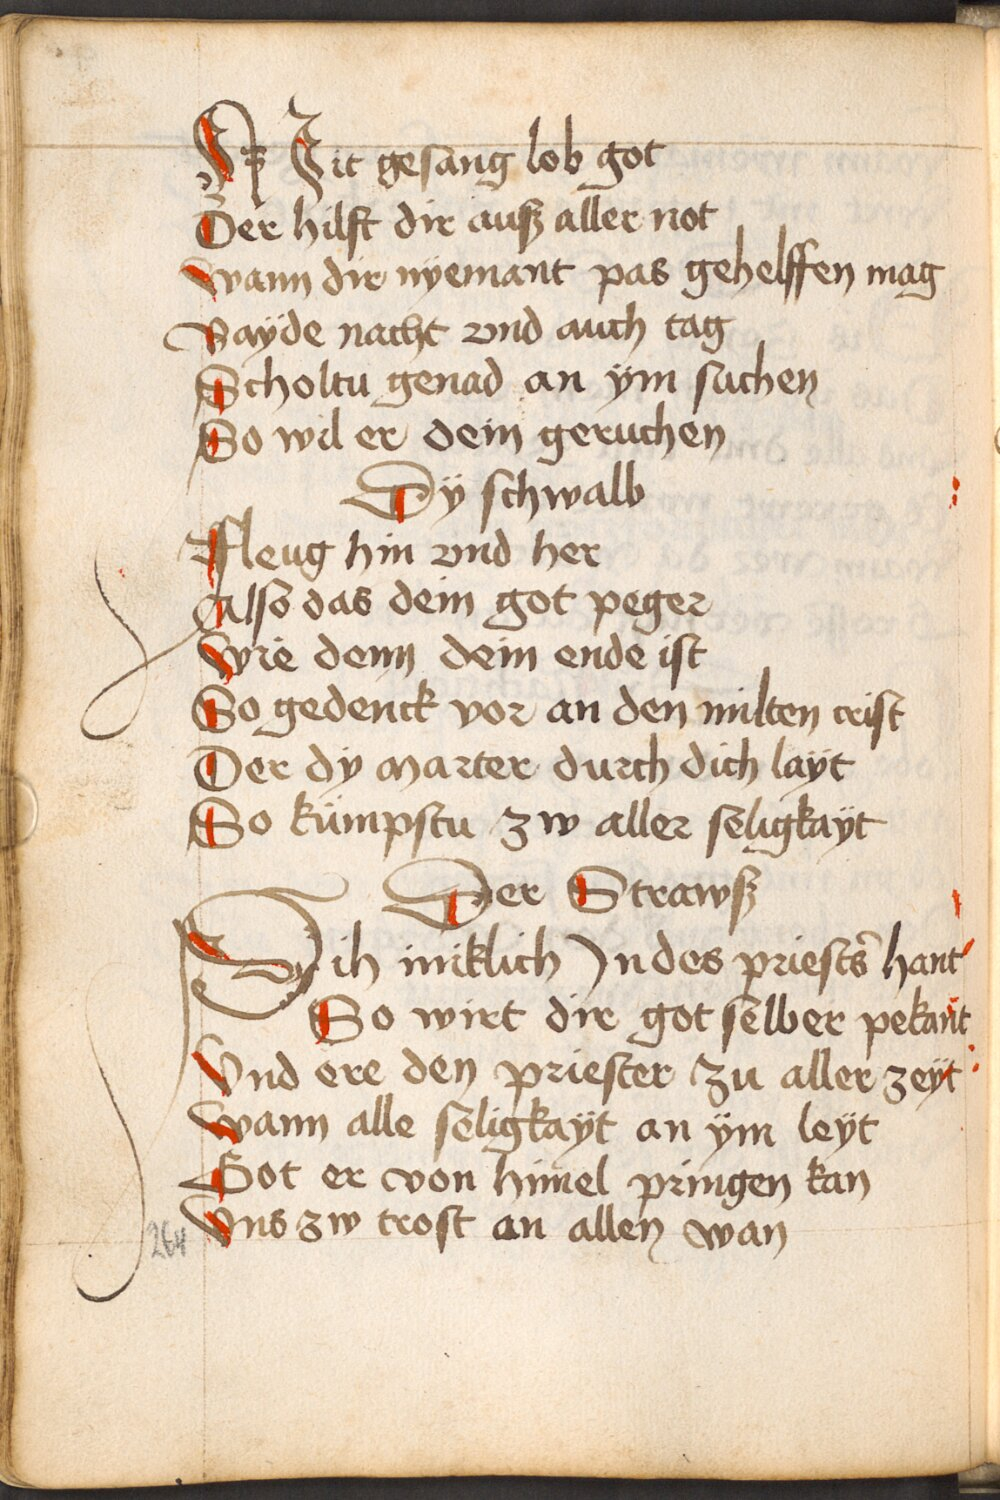 Mit gesang lob got
Der hilft dir auß aller not
Wann dir nyemant pas gehelffen mag
Bayde nacht vnd auch tag
Scholtu genad an ÿm suchen
So wil er dein geruchen
Dÿ schwalb
Fleug hin vnd her
Also das dein got peger
Wie denn dein ende ist
So gedenck vor an den milten crist
Der dÿ marter durch dich laÿt
So kümpstu zw aller seligkaÿt
Der Strawß
Sih iniklich In des priesters hant
So wirt dir got selber pekant
Vnd ere den priester zu aller zeÿt
Wann alle seligkaÿt an ÿm leÿt
Got er von himel pringen kan
Vns zw trost an allen wan
264